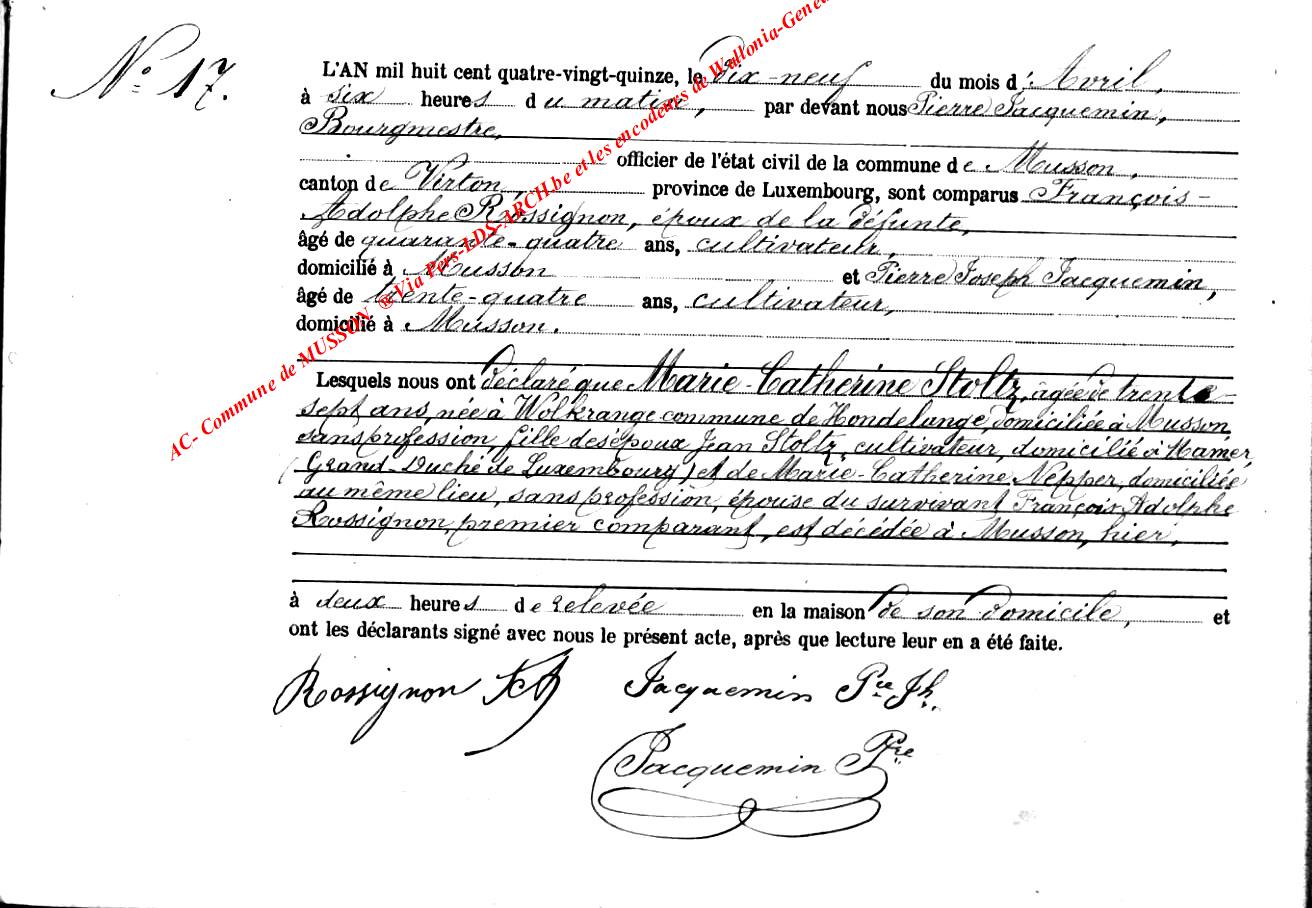 N° 17.
L'AN mil huit cent quatre-vingt-quinze, le Dix-neuf du mois d' Avril,
à six heures du matin, par devant nous Pierre Jacquemin,
Bourgmestre,
officier de l'état civil de la commune de Musson,
canton de Virton, province de Luxembourg, sont comparus François-
Adolphe Rossignon, époux de la défunte,
âgé de quarante-quatre ans, cultivateur,
domicilié à Musson et Pierre Joseph Jacquemin,
âgé de trente-quatre ans, cultivateur,
domicilié à Musson.
Lesquels nous ont déclaré que Marie-Catherine Stoltz, âgée de trente-
sept ans, née à Wolkrange commune de Hondelange, domiciliée à Musson
sans profession, fille des époux Jean Stoltz, cultivateur, domicilié à Hamer,
(Grand-Duché de Luxembourg) et de Marie-Catherine Nepper, domiciliée
au même lieu, sans profession, épouse du survivant François Adolphe
Rossignon, premier comparant, est décédée à Musson, hier,
à deux heures de relevée en la maison de son domicile, et
ont les déclarants signé avec nous le présent acte, après que lecture leur en a été faite.
Rossignon Jacquemin Pre Jh.
Jacquemin Pre
AC- Commune de MUSSON ®Via Pers-LDS-ARCH.be et les encodeurs de Wallonia-Genea